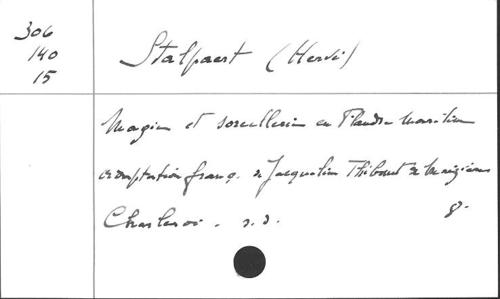 306
140
15
Stalpaert (Hervé)
Magie et sorcellerie en Flandre maritime
adaptation franç. de Jacqueline Thibaut de Maizières
Charleroi. s.d. 8.